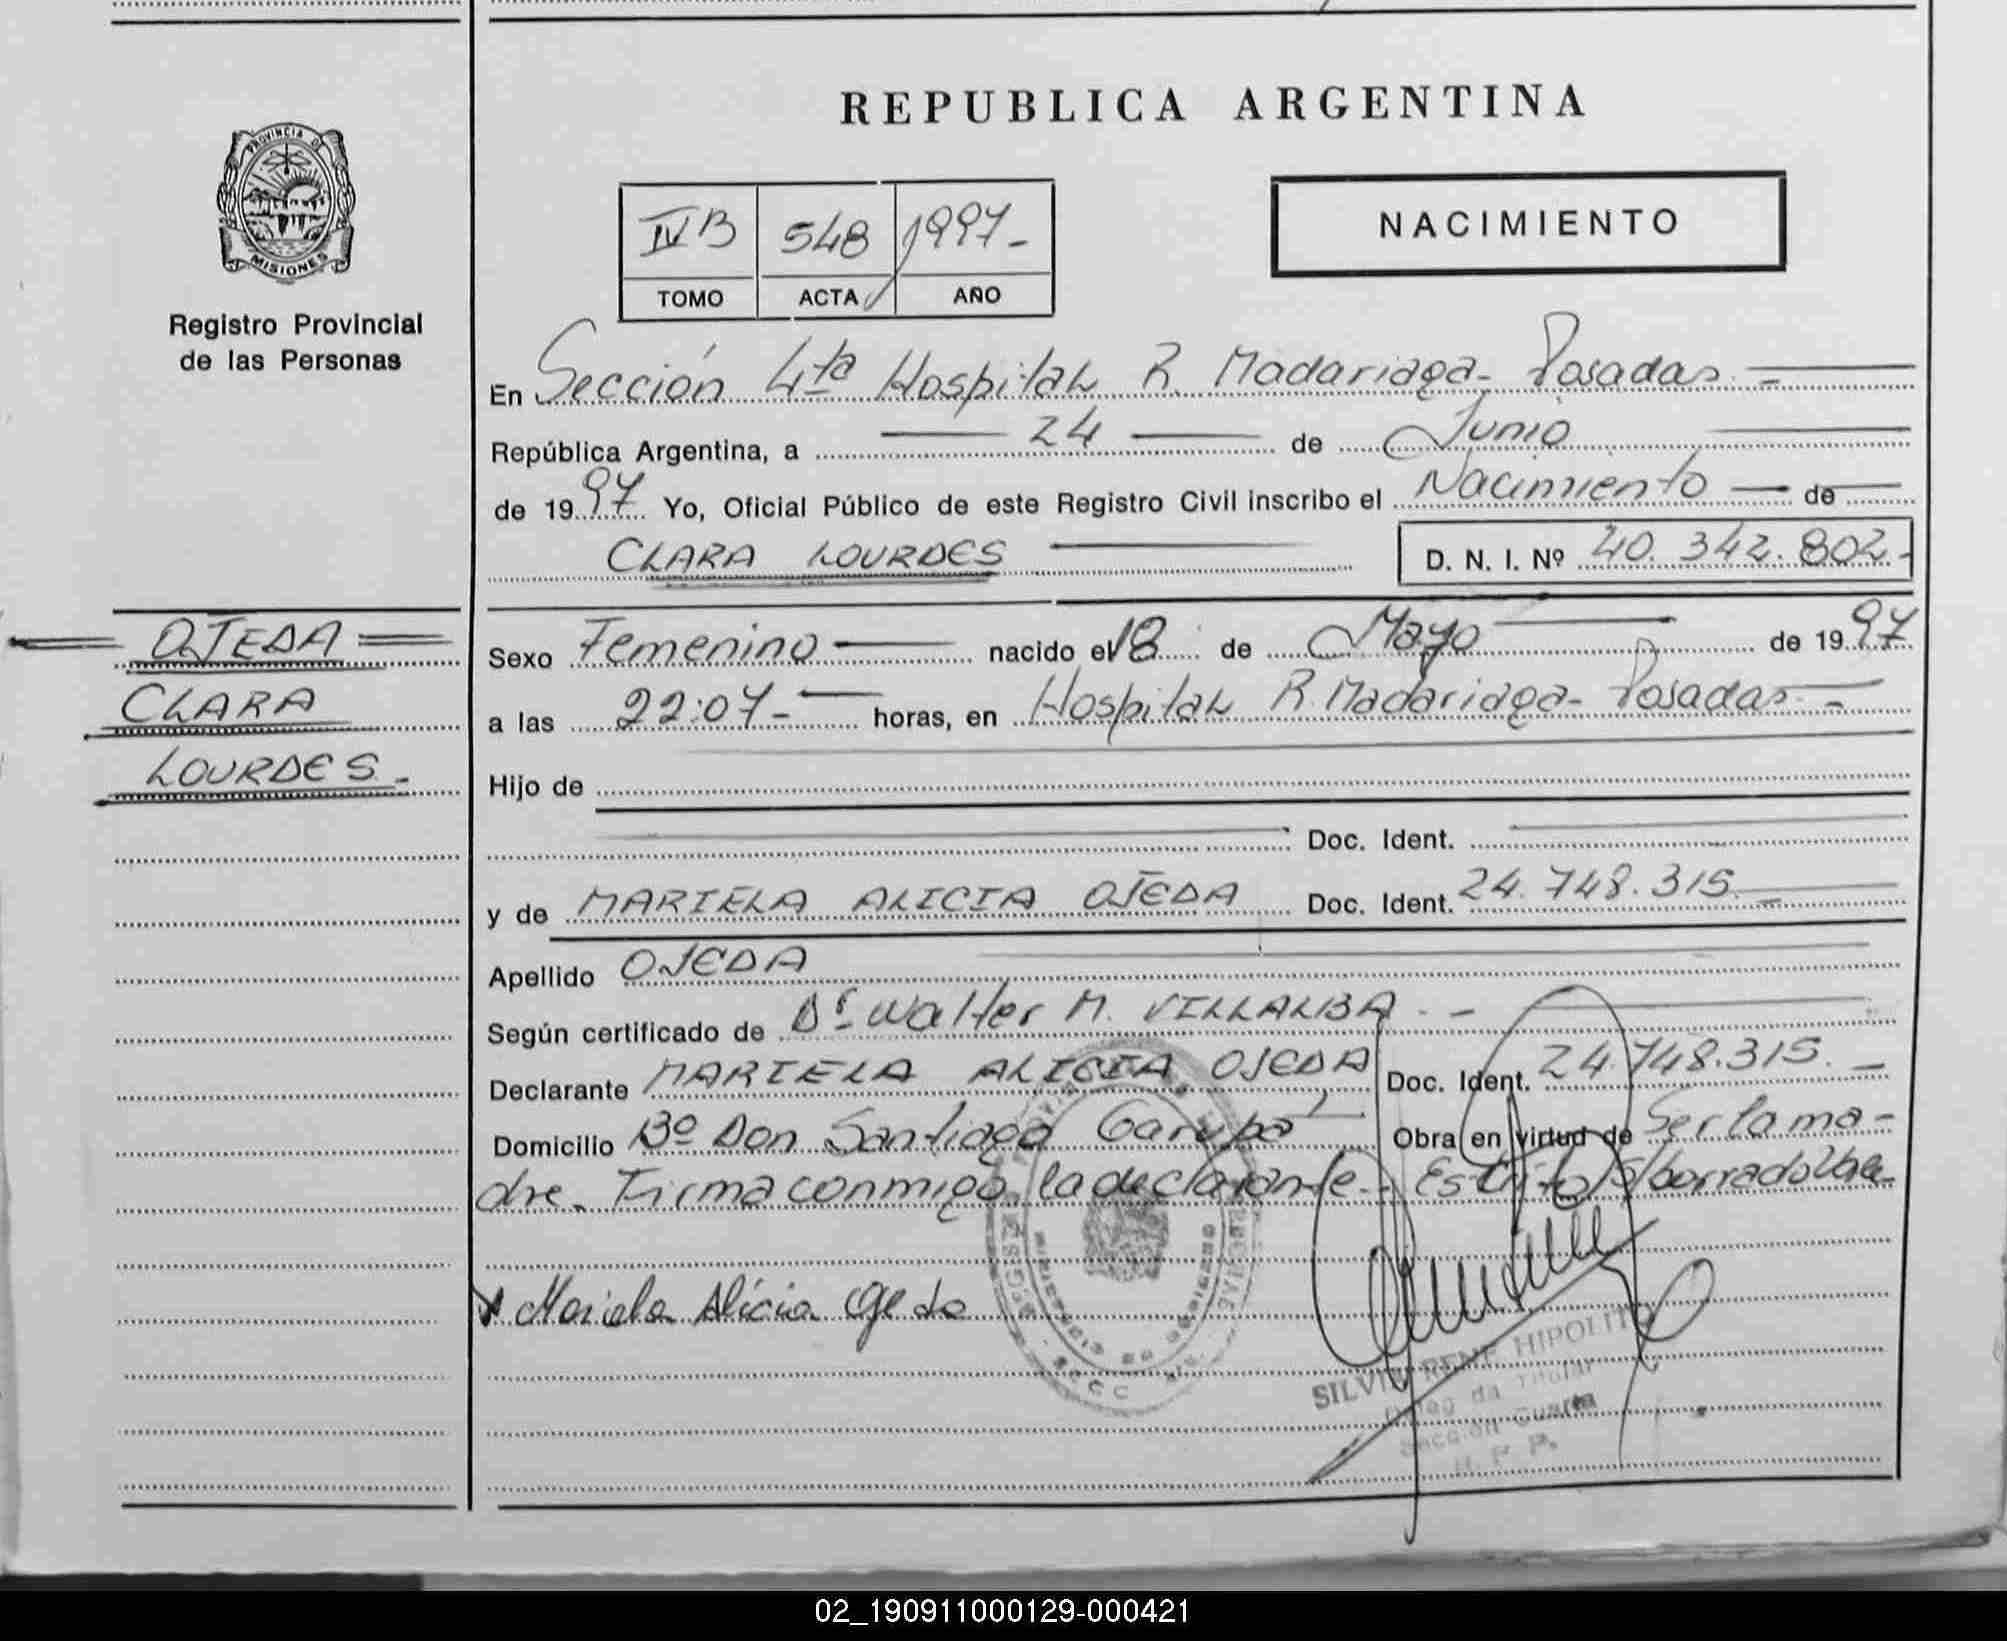 REPUBLICA ARGENTINA
PROVINCIA DE
MISIONES
Registro Provincial
de las Personas
IVB 548 1997-
TOMO ACTA AÑO
NACIMIENTO
En Sección 4ta Hospital R. Madariaga- Posadas -
República Argentina, a 24 de Junio
de 1997 Yo, Oficial Público de este Registro Civil inscribo el Nacimiento de
CLARA LOURDES
D. N. I. Nº 40.342.802.-
OJEDA
CLARA
LOURDES.-
Sexo Femenino nacido el 18 de Mayo de 1997
a las 22:07- horas, en Hospital R. Madariaga- Posadas -
Hijo de
Doc. Ident.
y de MARIELA ALICIA OJEDA Doc. Ident. 24.748.315. -
Apellido OJEDA
Según certificado de Dr. Walter M. VILLALBA. -
Declarante MARIELA ALICIA OJEDA Doc. Ident. 24.748.315. -
Domicilio Bº Don Santiago Garupá Obra en virtud de Ser la ma-
dre. Firma conmigo la declarante. Escrito s/borrado Vale
Mariela Alicia Ojeda
SILVIA RENE HIPOLITO
Titular
Sección Cuarta
R. P. P.
02_190911000129-000421